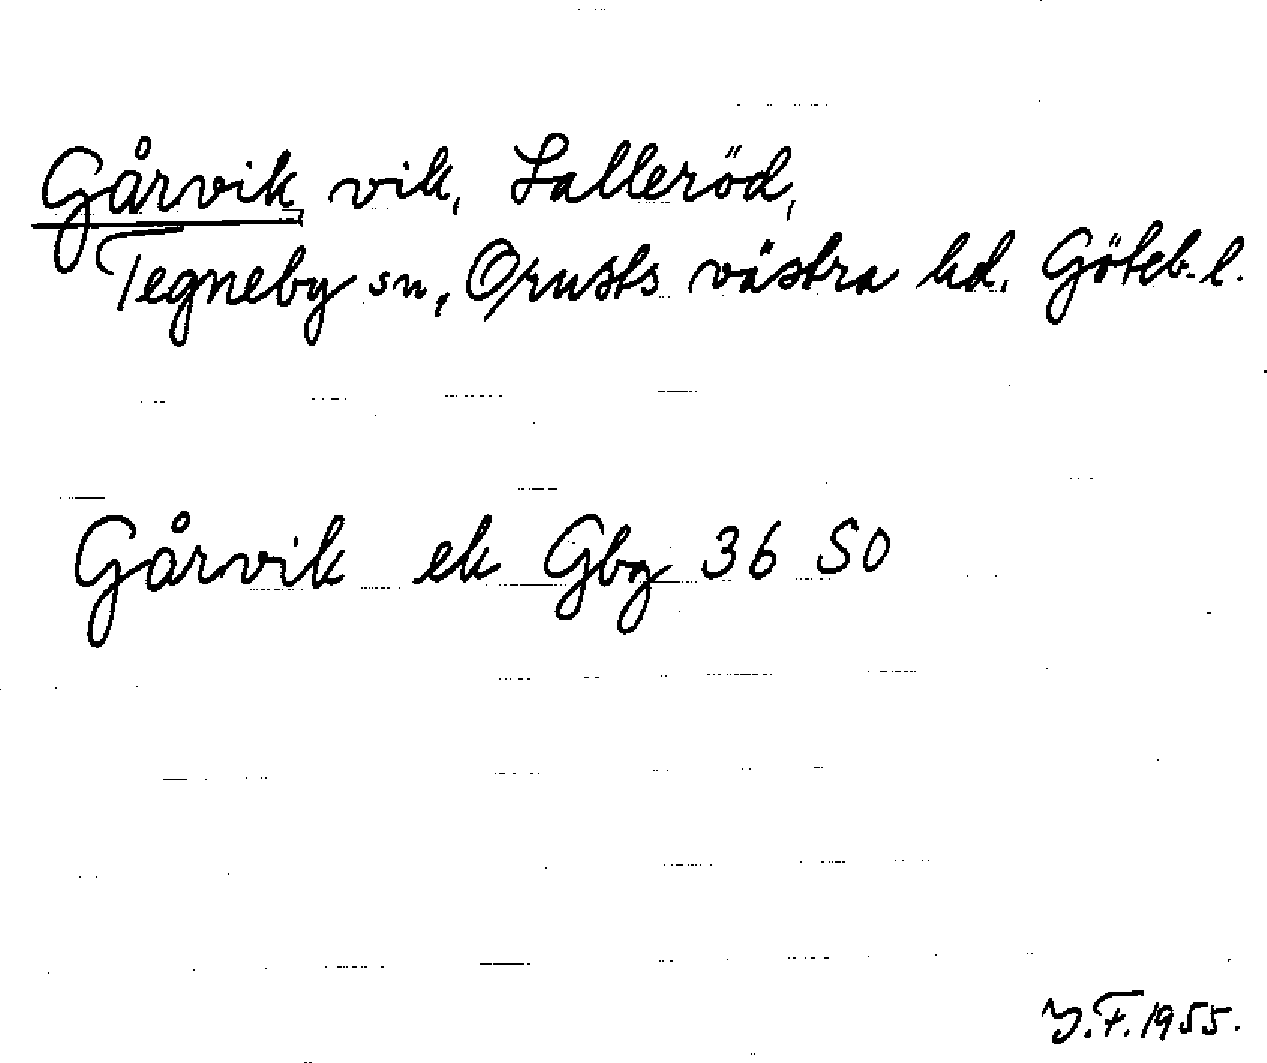 Gårvik, vik, Salleröd,
Tegneby sn, Orusts västra hd. Göteb. l.
Gårvik ek Gbg 36 SO
Y.F. 1955.